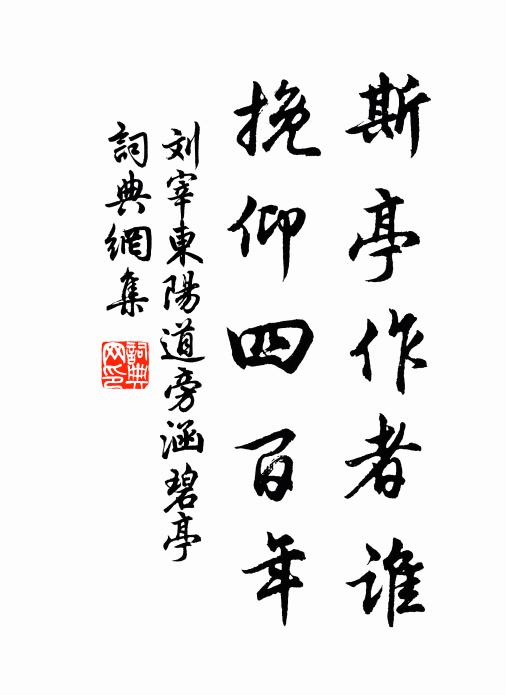 斯亭作者誰
挽仰四百年
刘宰東陽道旁涵碧亭
詞典網集
詞典网印